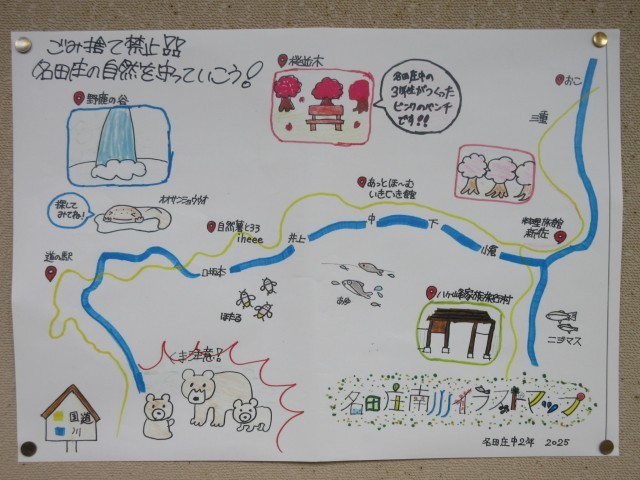 ごみ捨て禁止
名田庄の自然を守っていこう!
野鹿の谷
桜並木
名田庄中の
3年生がつくった
ピンクのベンチ
です!!
おこ
三重
探して
みてね!
オオサンショウウオ
あっとほ〜む
いきいき館
自然薯と33
iheee
井上
中
下
小倉
料理旅館
新佐
道の駅
口坂本
ほたる
あゆ
八ヶ峰家族旅行村
ニジマス
くま注意
国道
川
名田庄南川イラストマップ
名田庄中2年 2025